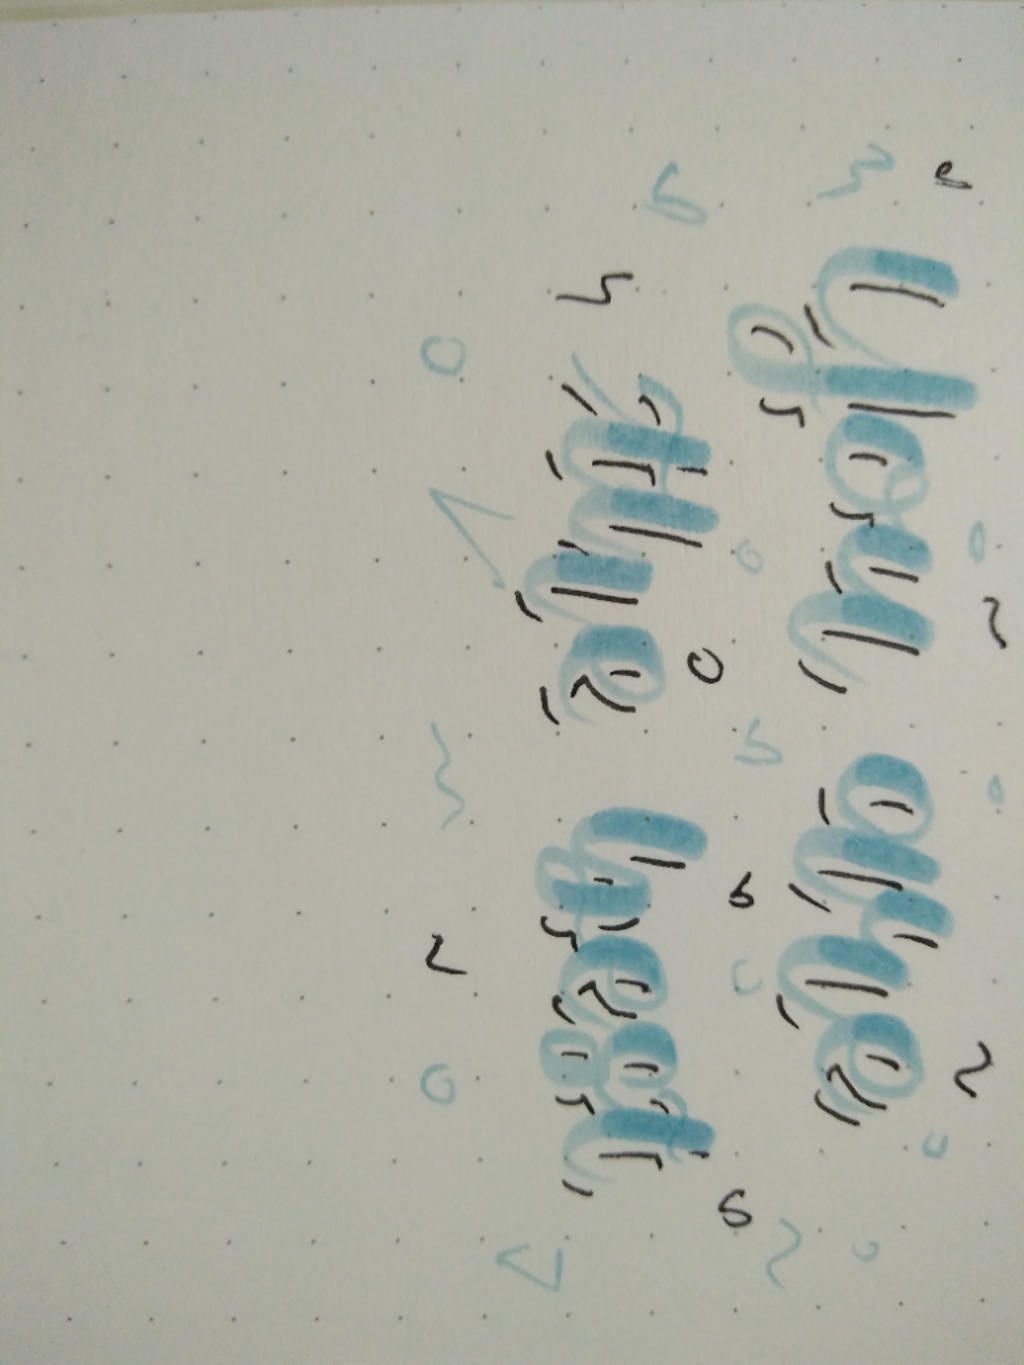 You are
the best